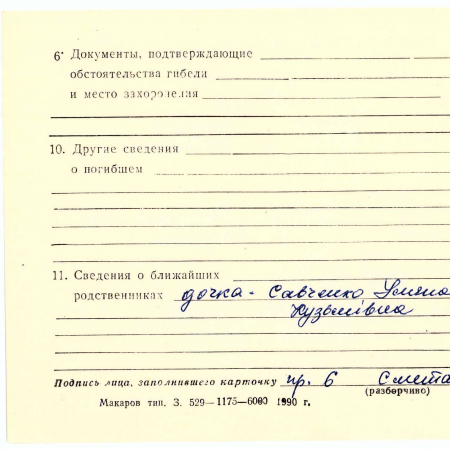 6· Документы, подтверждающие
обстоятельства гибели
и место захоронения
10. Другие сведения
о погибшем
11. Сведения о ближайших
родственниках дочка - Савченко Уляна
Кузьмівна
Подпись лица, заполнившего карточку пр. 6 Смета
(разборчиво)
Макаров тип. З. 529—1175—6000 1990 г.